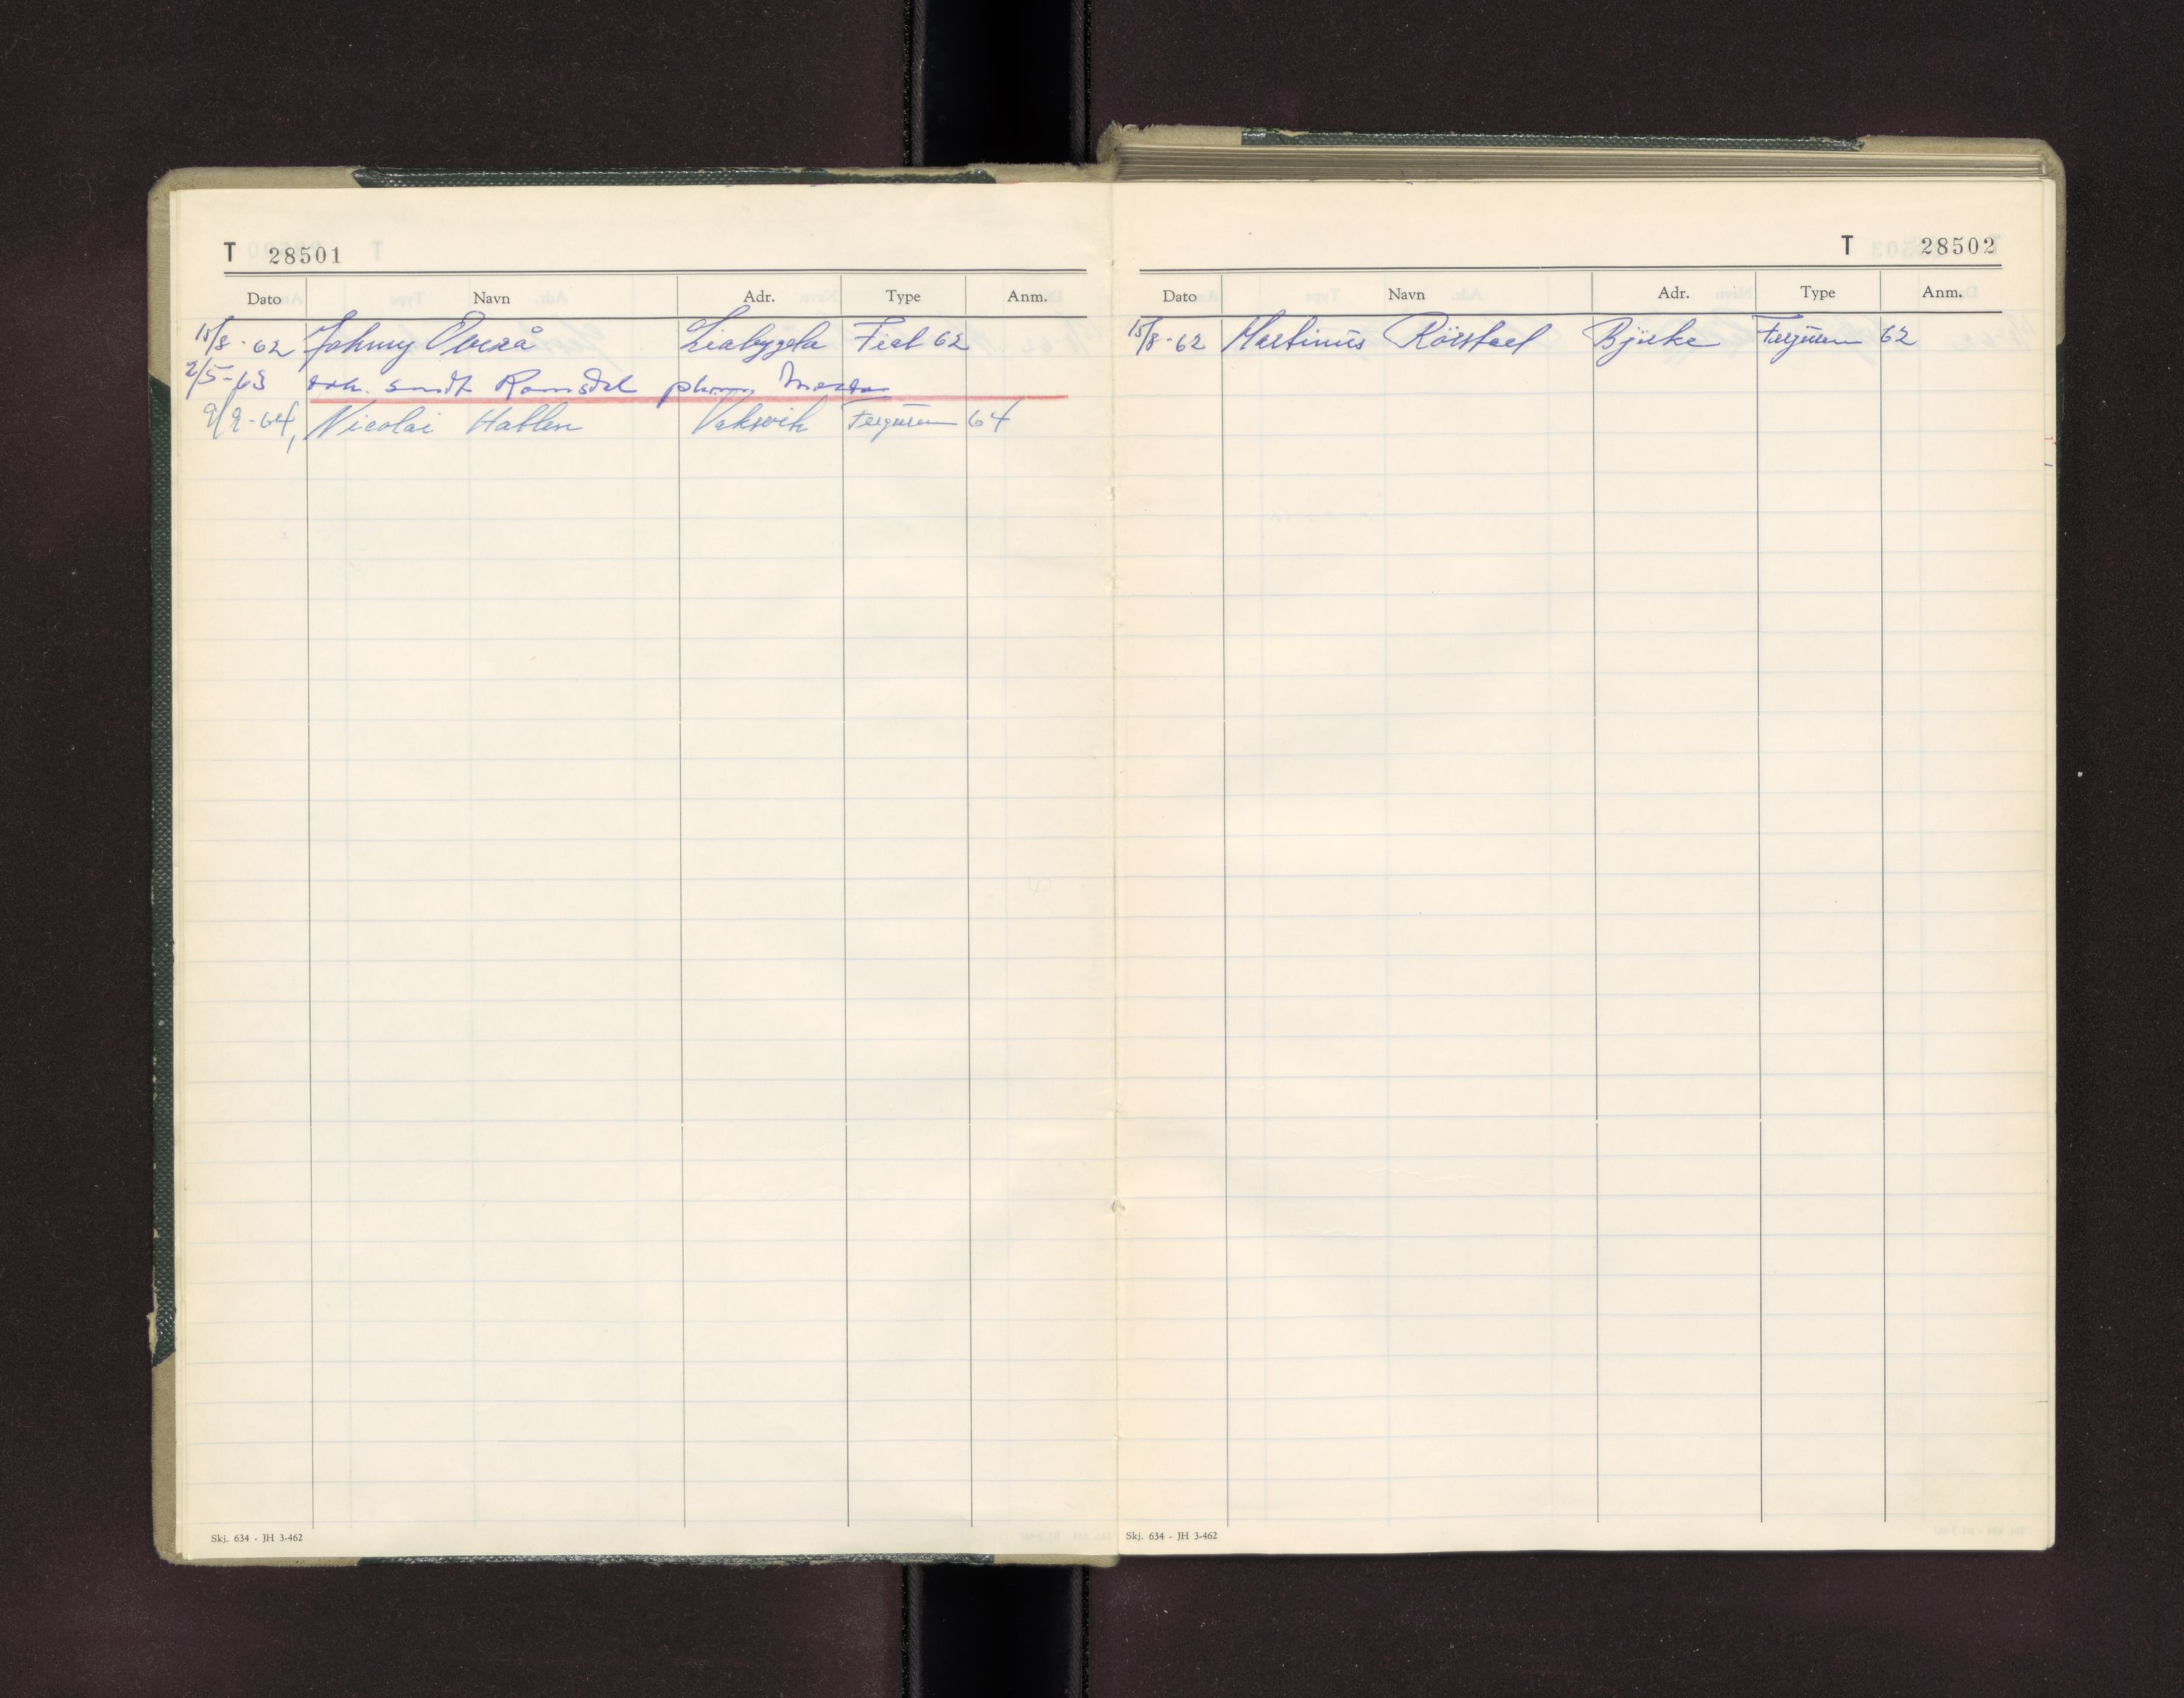 T 28501
Dato Navn Adr. Type Anm.
15/8-62 Johnny Overå Liabygda Fiat 62
2/5-63 sendt Romsdal
9/9-64, Nicolai Hatlen Vaksvik Ferguson 64
Skj. 634 - JH 3-462
T 28502
Dato Navn Adr. Type Anm.
15/8-62 Martinus Rörstad Bjørke Ferguson 62
Skj. 634 - JH 3-462